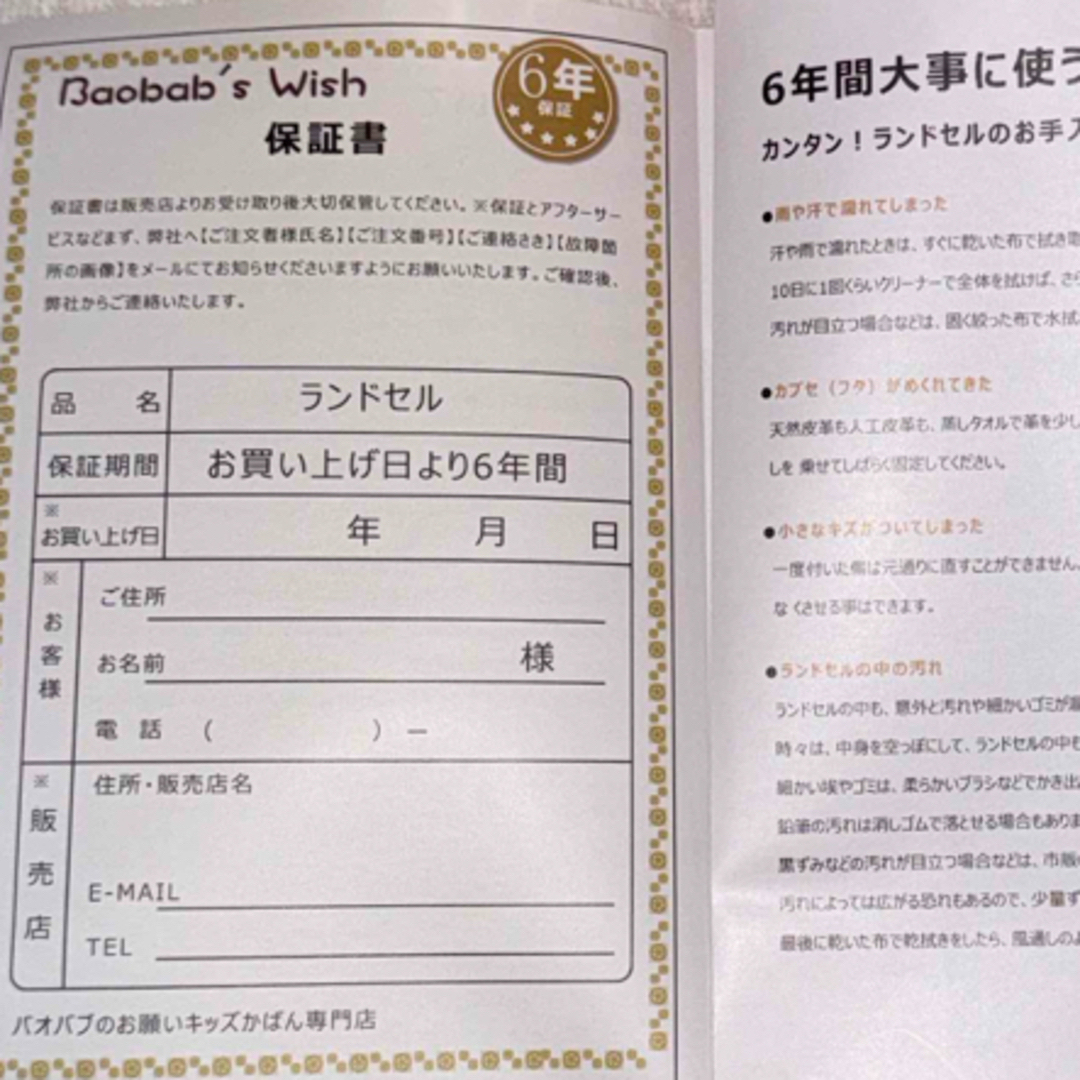 Baobab's Wish
6年
保証
保証書
保証書は販売店よりお受け取り後大切保管してください。※保証とアフターサー
ビスなどまず、弊社へ【ご注文者様氏名】【ご注文番号】【ご連絡さき】【故障箇
所の画像】をメールにてお知らせくださいますようにお願いいたします。ご確認後、
弊社からご連絡いたします。
品 名 ランドセル
保証期間 お買い上げ日より6年間
※
お買い上げ日 年 月 日
※
お客様
ご住所
お名前 様
電 話 ( ) ー
※
販売店
住所・販売店名
E-MAIL
TEL
バオバブのお願いキッズかばん専門店
6年間大事に使う
カンタン！ランドセルのお手入
●雨や汗で濡れてしまった
汗や雨で濡れたときは、すぐに乾いた布で拭き取
10日に1回くらいクリーナーで全体を拭けば、さら
汚れが目立つ場合などは、固く絞った布で水拭
●カブセ（フタ）がめくれてきた
天然皮革も人工皮革も、蒸しタオルで革を少し
しを 乗せてしばらく固定してください。
●小さなキズがついてしまった
一度付いた傷は元通りに直すことができません
なくさせる事はできます。
●ランドセルの中の汚れ
ランドセルの中も、意外と汚れや細かいゴミが
時々は、中身を空っぽにして、ランドセルの中も
細かい埃やゴミは、柔らかいブラシなどでかき出
鉛筆の汚れは消しゴムで落とせる場合もありま
黒ずみなどの汚れが目立つ場合などは、市販
汚れによっては広がる恐れもあるので、少量ず
最後に乾いた布で乾拭きをしたら、風通しのよ